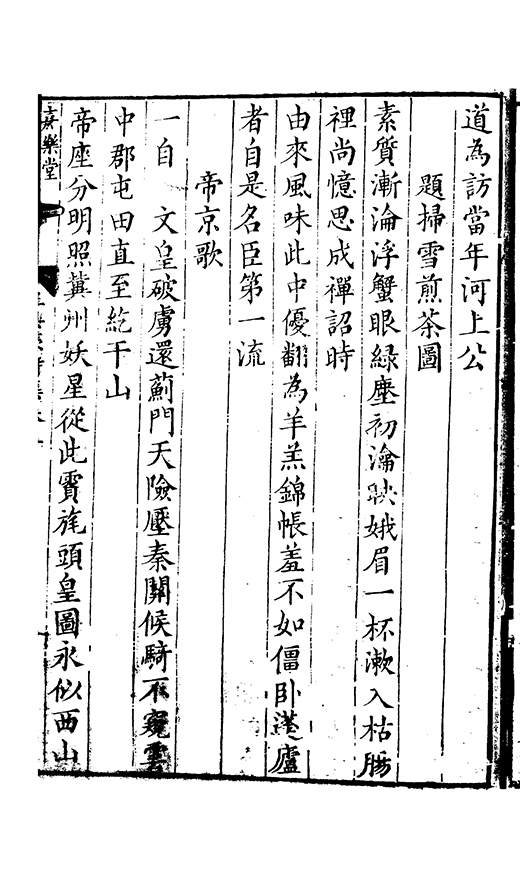 道為訪當年河上公
題掃雪煎茶圖
素質漸淪浮蟹眼綠塵初瀹映娥眉一杯漱入枯腸
裡尚憶思成禪詔時
由來風味此中優翻為羊羔錦帳羞不如僵卧蓬廬
者自是名臣第一流
帝京歌
一自 文皇破虜還薊門天險壓秦關候騎不窺雲
中郡屯田直至紇干山
帝座分明照冀州妖星從此賈旄頭皇圖永似西山
嘉樂堂